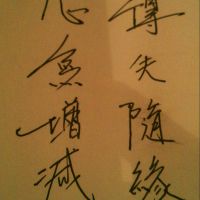 得失隨緣
心無增減